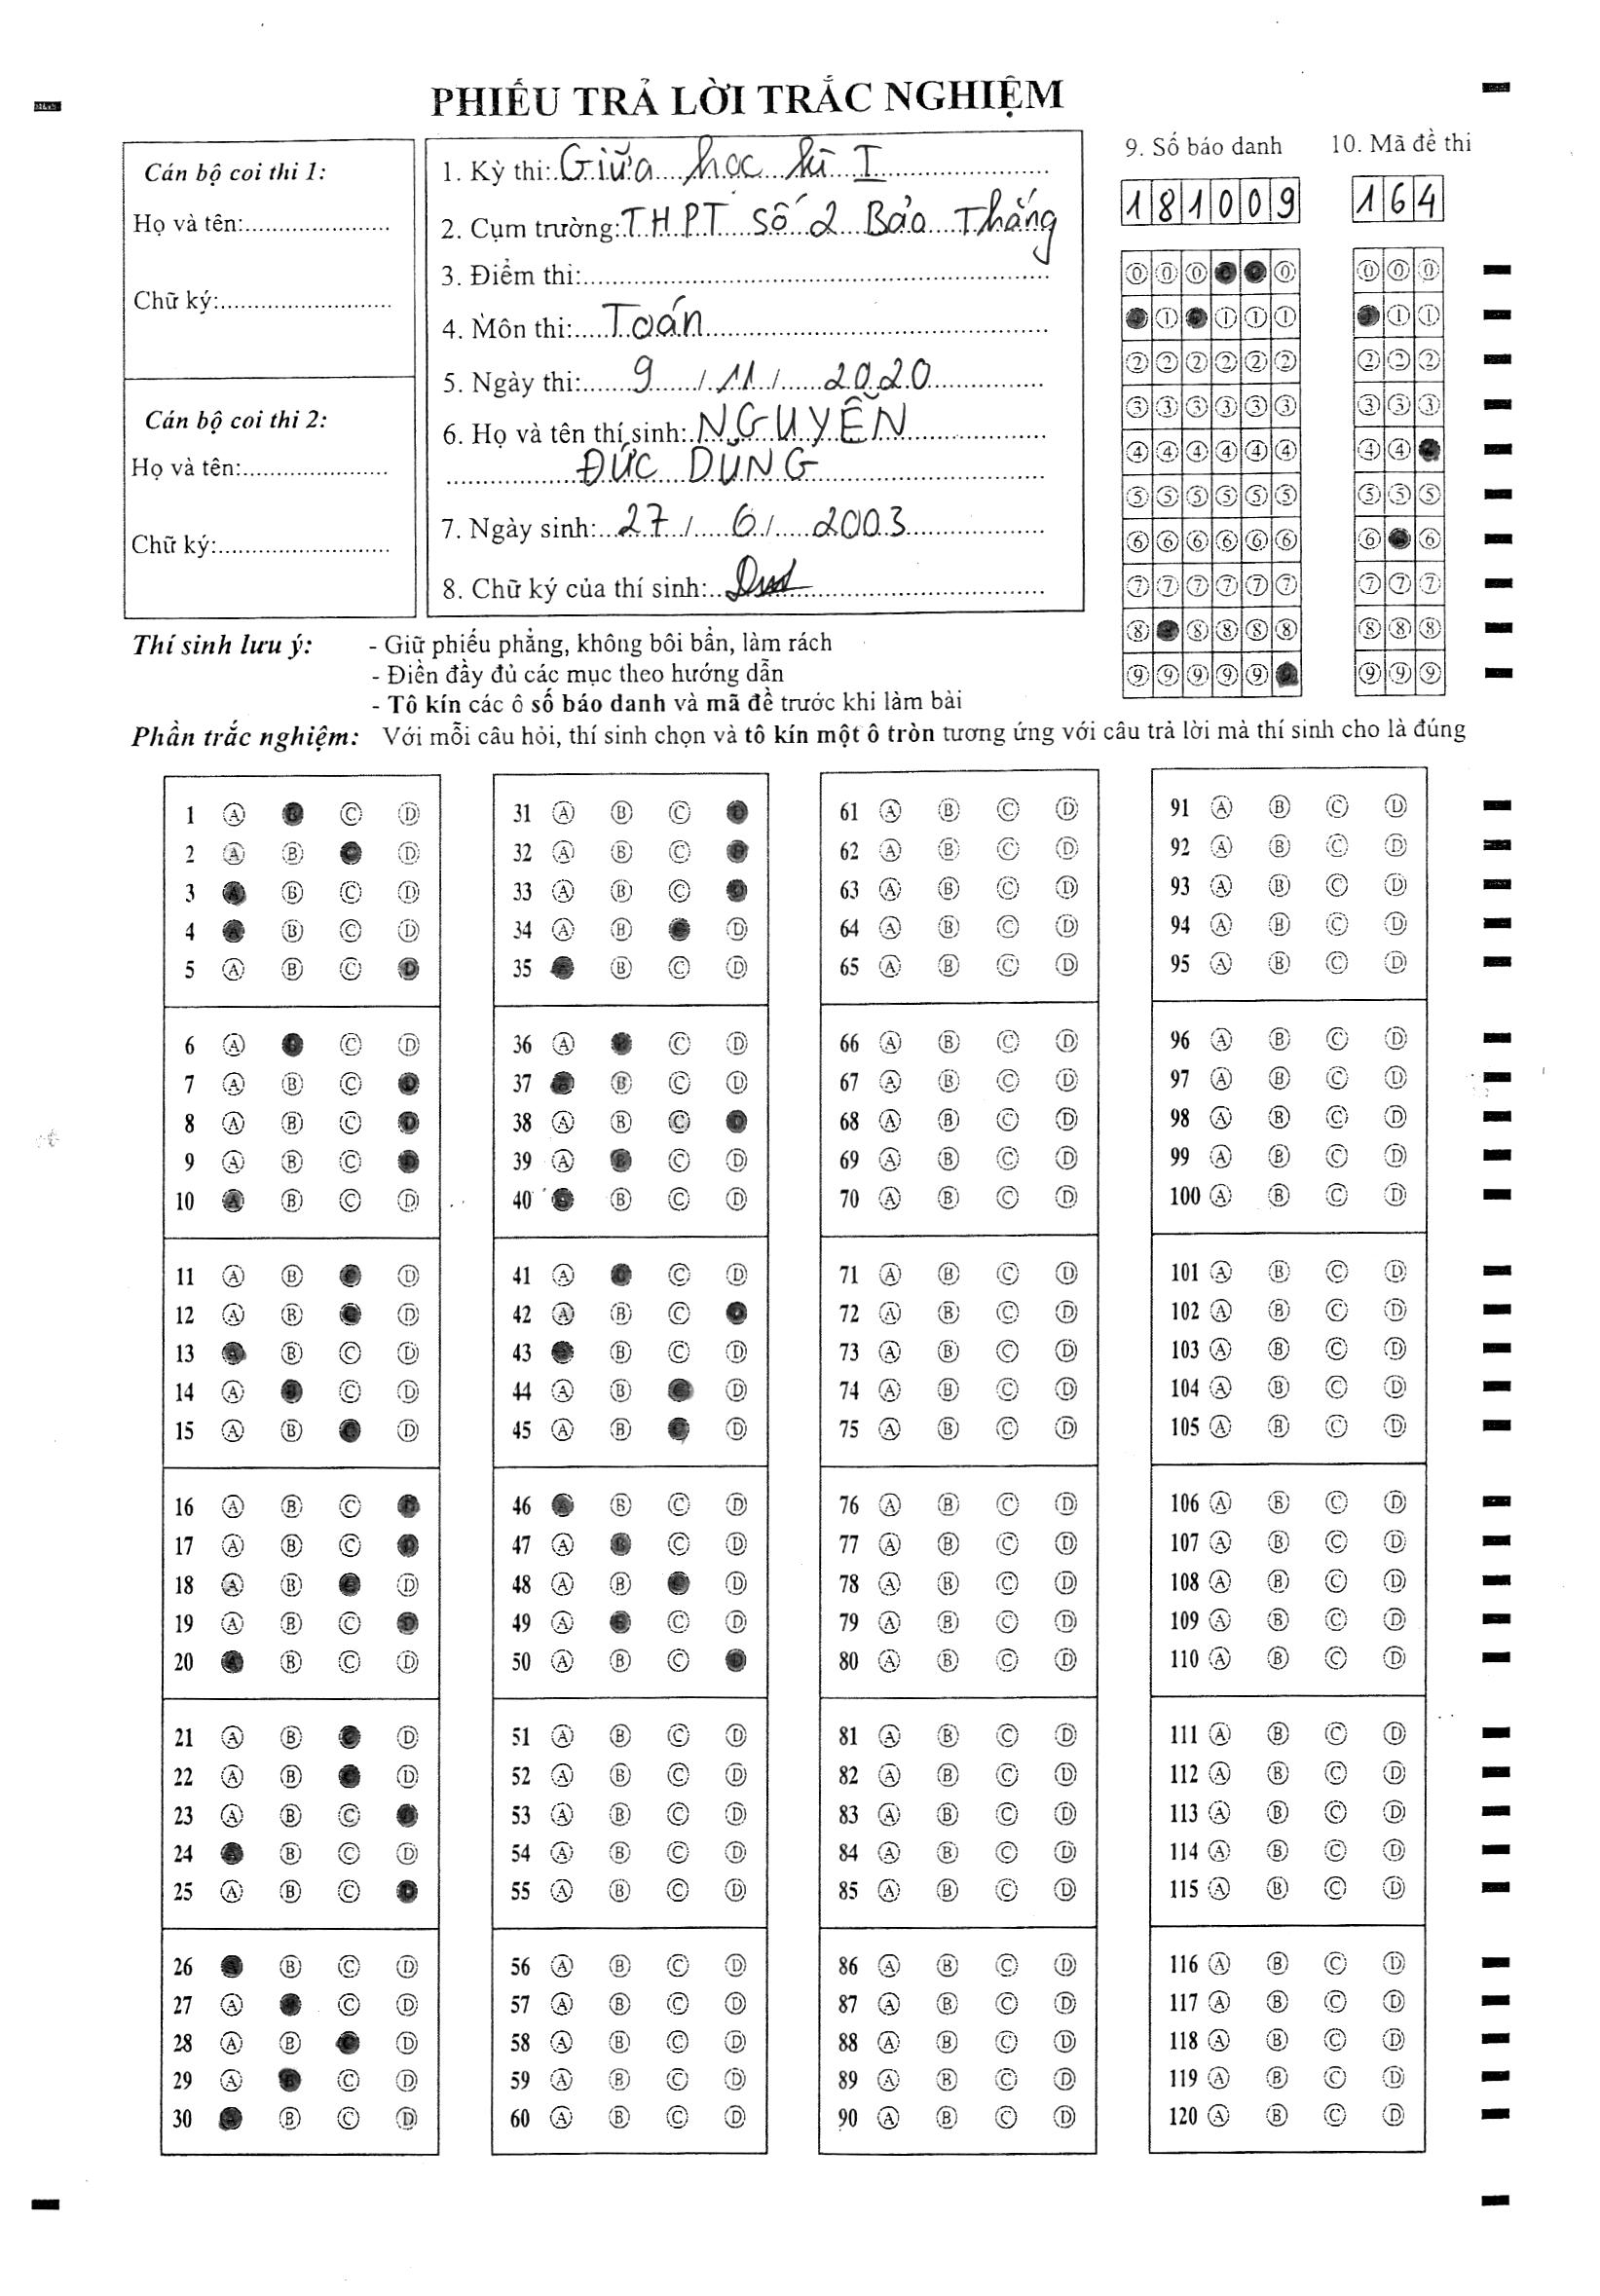 PHIẾU TRẢ LỜI TRẮC NGHIỆM
Cán bộ coi thi 1:
Họ và tên:
Chữ ký:
Cán bộ coi thi 2:
Họ và tên:
Chữ ký:
1. Kỳ thi: Giữa học kì I
2. Cụm trường: THPT số 2 Bảo Thắng
3. Điểm thi:
4. Môn thi: Toán
5. Ngày thi: 9 / 11 / 2020
6. Họ và tên thí sinh: NGUYỄN
ĐỨC DŨNG
7. Ngày sinh: 27 / 6 / 2003
8. Chữ ký của thí sinh:
9. Số báo danh
181009
10. Mã đề thi
164
0 0 0 0 0 0 0
1 1 1 1 1 1
2 2 2 2 2 2 2 2 2
3 3 3 3 3 3 3 3 3
4 4 4 4 4 4 4 4
5 5 5 5 5 5 5 5 5
6 6 6 6 6 6 6 6
7 7 7 7 7 7 7 7 7
8 8 8 8 8 8 8 8
9 9 9 9 9 9 9 9
Thí sinh lưu ý: - Giữ phiếu phẳng, không bôi bẩn, làm rách
- Điền đầy đủ các mục theo hướng dẫn
- Tô kín các ô số báo danh và mã đề trước khi làm bài
Phần trắc nghiệm: Với mỗi câu hỏi, thí sinh chọn và tô kín một ô tròn tương ứng với câu trả lời mà thí sinh cho là đúng
1 A B C D
2 A B D
3 A B C D
4 A B C D
5 A B C D
6 A C D
7 A B C D
8 A B C D
9 A B C D
10 A B C D
11 A B C D
12 A B C D
13 A B C D
14 A C D
15 A B C D
16 A B C D
17 A B C D
18 A B C D
19 A B C D
20 A B C D
21 A B C D
22 A B C D
23 A B C
24 A B C D
25 A B C D
26 A B C D
27 A C D
28 A B C D
29 A B C D
30 A B C D
31 A B C D
32 A B C D
33 A B C D
34 A B C D
35 B C D
36 A C D
37 B C D
38 A B C D
39 A B C D
40 B C D
41 A C D
42 A B C D
43 B C D
44 A B C D
45 A B C D
46 A B C D
47 A B C D
48 A B C D
49 A B C D
50 A B C D
51 A B C D
52 A B C D
53 A B C D
54 A B C D
55 A B C D
56 A B C D
57 A B C D
58 A B C D
59 A B C D
60 A B C D
61 A B C D
62 A B C D
63 A B C D
64 A B C D
65 A B C D
66 A B C D
67 A B C D
68 A B C D
69 A B C D
70 A B C D
71 A B C D
72 A B C D
73 A B C D
74 A B C D
75 A B C D
76 A B C D
77 A B C D
78 A B C D
79 A B C D
80 A B C D
81 A B C D
82 A B C D
83 A B C D
84 A B C D
85 A B C D
86 A B C D
87 A B C D
88 A B C D
89 A B C D
90 A B C D
91 A B C D
92 A B C D
93 A B C D
94 A B C D
95 A B C D
96 A B C D
97 A B C D
98 A B C D
99 A B C D
100 A B C D
101 A B C D
102 A B C D
103 A B C D
104 A B C D
105 A B C D
106 A B C D
107 A B C D
108 A B C D
109 A B C D
110 A B C D
111 A B C D
112 A B C D
113 A B C D
114 A B C D
115 A B C D
116 A B C D
117 A B C D
118 A B C D
119 A B C D
120 A B C D